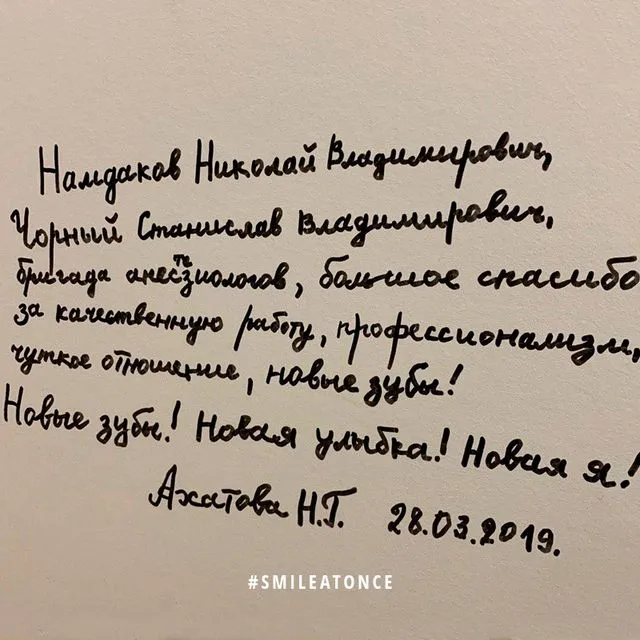 Намдаков Николай Владимирович,
Чорный Станислав Владимирович,
бригада анестезиологов, большое спасибо
за качественную работу, профессионализм,
чуткое отношение, новые зубы!
Новые зубы! Новая улыбка! Новая я!
Ахатова Н.Г. 28.03.2019.
#SMILEATONCE